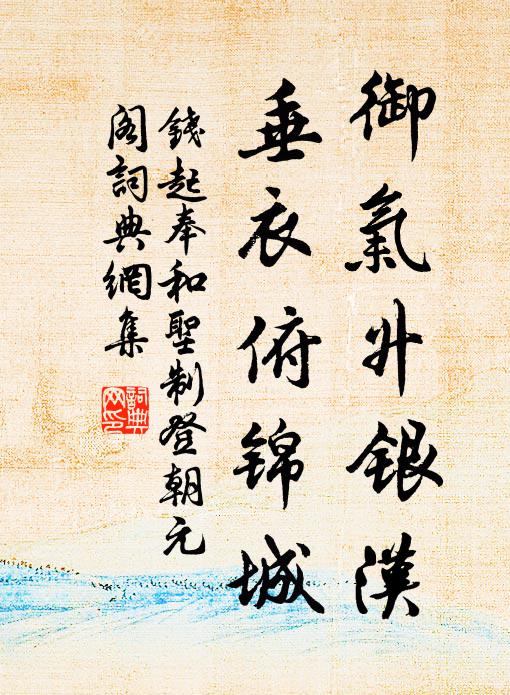 御氣升銀漢
垂衣俯錦城
錢起奉和聖制登朝元
閣詞典網集
詞典
网印